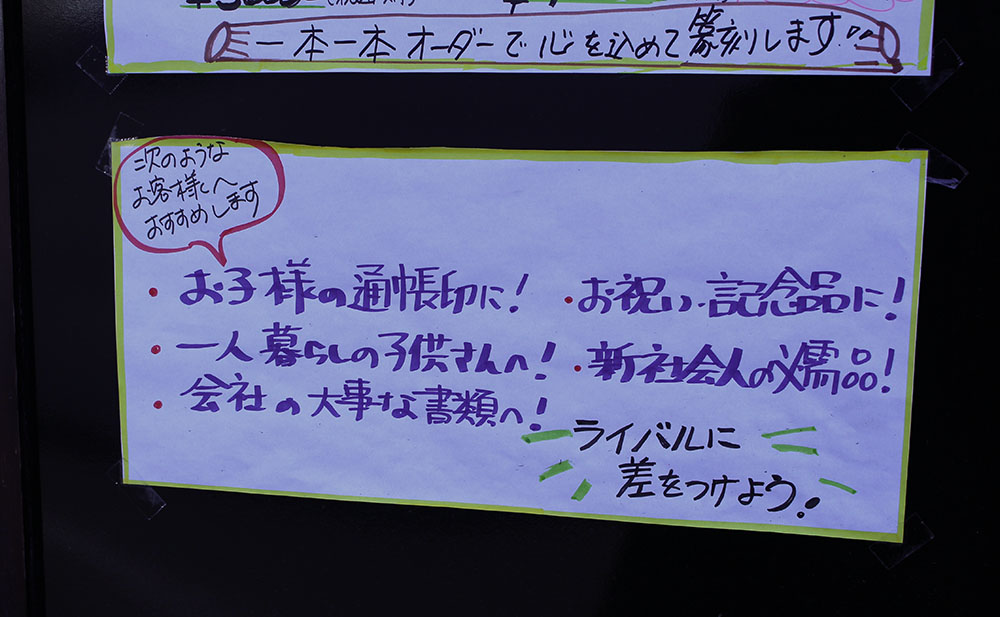 一本一本オーダーで心を込めて篆刻します
次のような
お客様へ
おすすめします
・お子様の通帳印に!
・お祝い・記念品に!
・一人暮らしの子供さんへ!
・新社会人の必需品!
・会社の大事な書類へ!
ライバルに
差をつけよう!